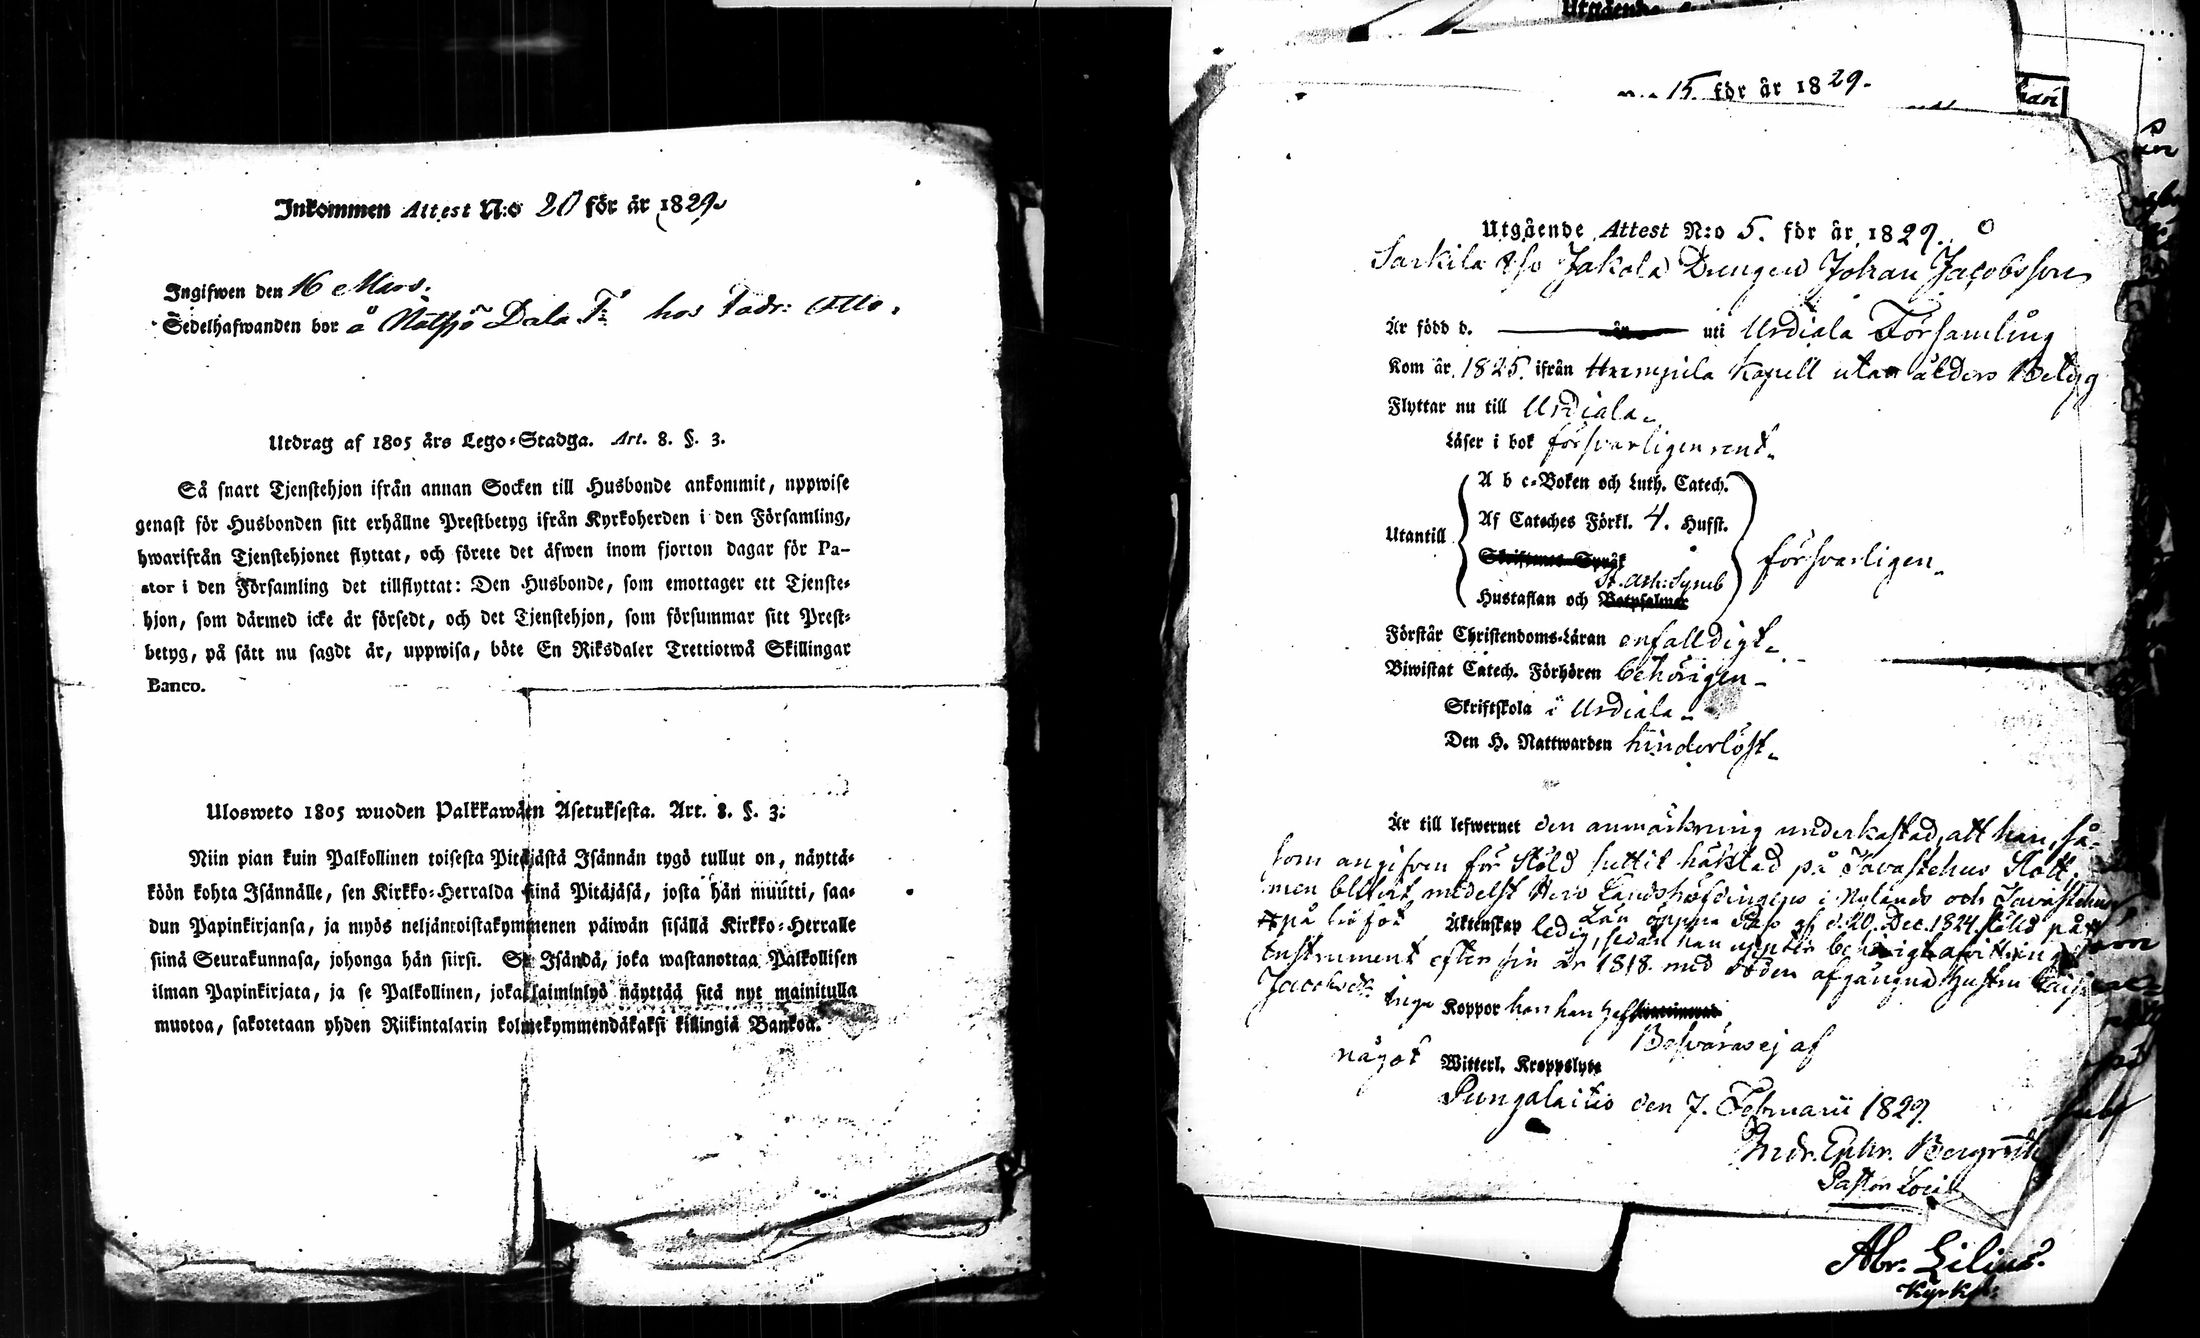 Inkommen Attest N:o 20 för år 1829.
Ingifwen den 16 Mars.
Sedelhafwanden bor å Nätsjö Dala hos Fadr: Otto.
Utdrag af 1805 års Lego-Stadga. Art. 8. §. 3.
Så snart Tjenstehjon ifrån annan Socken till Husbonde ankommit, uppwise
genast för Husbonden sitt erhållne Prestbetyg ifrån Kyrkoherden i den Församling,
hwarifrån Tjenstehjonet flyttat, och förete det äfwen inom fjorton dagar för Pa-
stor i den Församling det tillflyttat: Den Husbonde, som emottager ett Tjenste-
hjon, som därmed icke är försedt, och det Tjenstehjon, som försummar sitt Prest-
betyg, på sätt nu sagdt är, uppwisa, böte En Riksdaler Trettiotwå Skillingar
Banco.
Ulosweto 1805 wuoden Palkkawäen Asetuksesta. Art. 8. §. 3.
Niin pian kuin Palkollinen toisesta Pitäjästä Isännän tygö tullut on, näyttä-
köön kohta Isännälle, sen Kirkko-Herralda siinä Pitäjäsä, josta hän muutti, saa-
dun Papinkirjansa, ja myös neljäntoistakymmenen päiwän sisällä Kirkko-Herralle
siinä Seurakunnasa, johonga hän siirsi. Se Isändä, joka wastanottaa Palkollisen
ilman Papinkirjata, ja se Palkollinen, joka laiminlyö näyttää sitä nyt mainitulla
muotoa, sakotetaan yhden Riikintalarin kolmekymmendäkaksi killingiä Bankoa.
Utgående
15. för år 1829.
Utgående Attest N:o 5. för år 1829.
Sarkila Jakola Drengen Johan Jacobsson
Är född d. uti Urdiala Församling
Kom år 1825. ifrån Humpila Kapell utan ålders Betyg
Flyttar nu till Urdiala
Läser i bok försvarligen rent
A b c-Boken och Luth. Catech.
Utantill Af Cateches Förkl. 4. Hufst. försvarligen
Skriftenes Språk
St. Ath: Symb
Hustaflan och Botpsalmer
Förstår Christendoms-Läran enfalldigt
Biwistat Catech. Förhören behörigen
Skriftskola i Urdiala
Den H. Nattwarden hinderlöst
Är till lefwernet den anmärkning underkastad, att han, så-
som angifven för stöld suttit häktad på Tavastehus Slott,
men blifvit, medelst Herr Landshöfdingens i Nylands och Tavastehus
Län öppna Pass af d. 20. Dec. 1824. ställd på
på fri fot Äktenskap ledig, sedan han
instrument efter sin år 1818 med döden afgångna hustru
Jacobsdr
Inga Koppor har han haft
Besväras ej af
något Witterl. Kroppslyte
Pungalaitio den 7. Februarii 1829
Andr. Ephr. Bergroth
Pastor Loci
Abr: Lilius.
Kyrkoh: